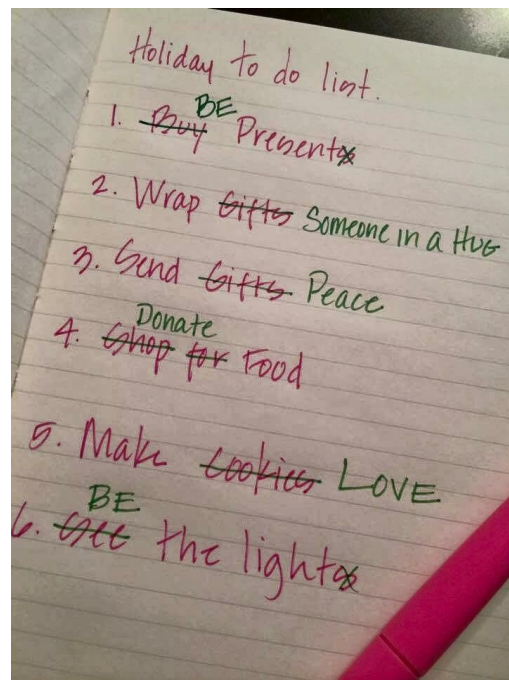 Holiday to do list.
BE
1. Buy Presents
2. Wrap Gifts Someone in a HUG
3. Send Gifts Peace
Donate
4. Shop for Food
5. Make Cookies LOVE
BE
6. See the lights